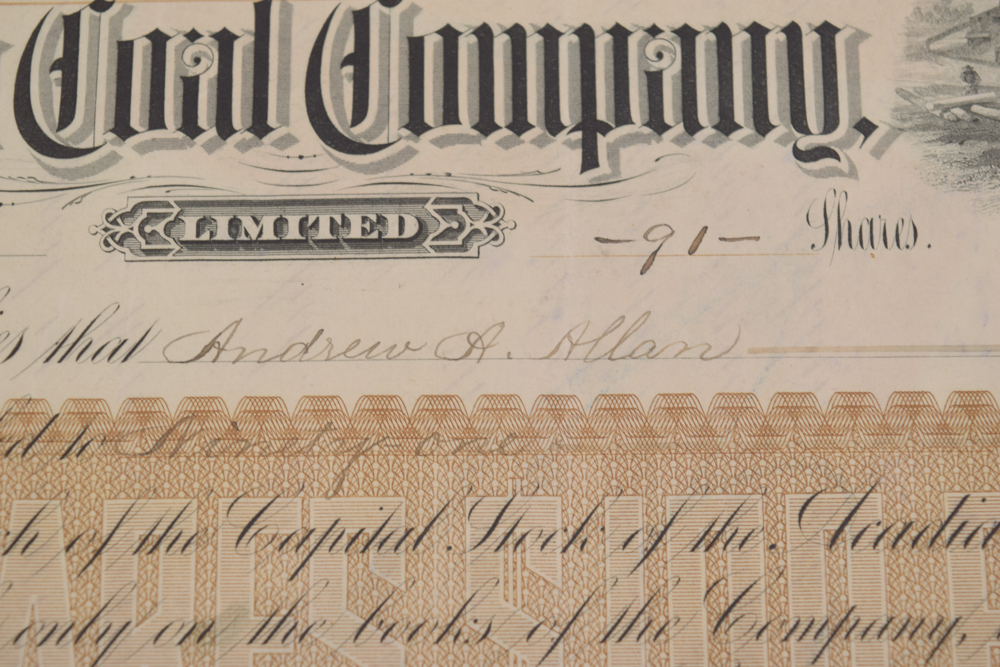 Coal Company,
LIMITED
-91- Shares.
that Andrew A. Allan
to Ninety one
of the Capital Stock of the Acadia
only on the books of the Company,